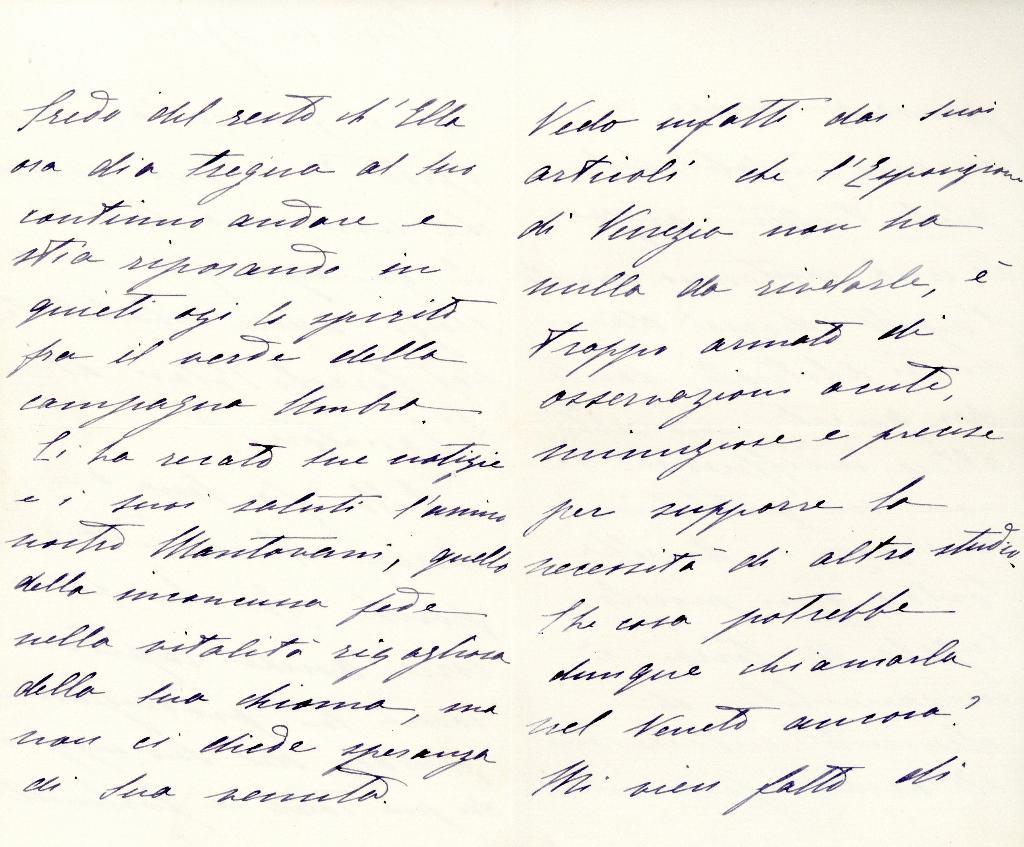 Credo del resto ch'Ella
ora dia tregua al suo
continuo andare e
stia riposando in
quieti ozi lo spirito
fra il verde della
campagna Umbra.
Ci ha recato sue notizie
e i suoi saluti l'amico
nostro Mantovani, quello
della inconcussa fede
nella vitalità rigogliosa
della sua chioma, ma
non ci diede speranza
di Sua venuta.
Vedo infatti dai suoi
articoli che l'Esposizione
di Venezia non ha
nulla da rivelarle, è
troppo armato di
osservazioni acute,
minuziose e precise
per supporre la
necessità di altro studio.
Che cosa potrebbe
dunque chiamarla
nel Veneto ancora?
Mi vien fatto di